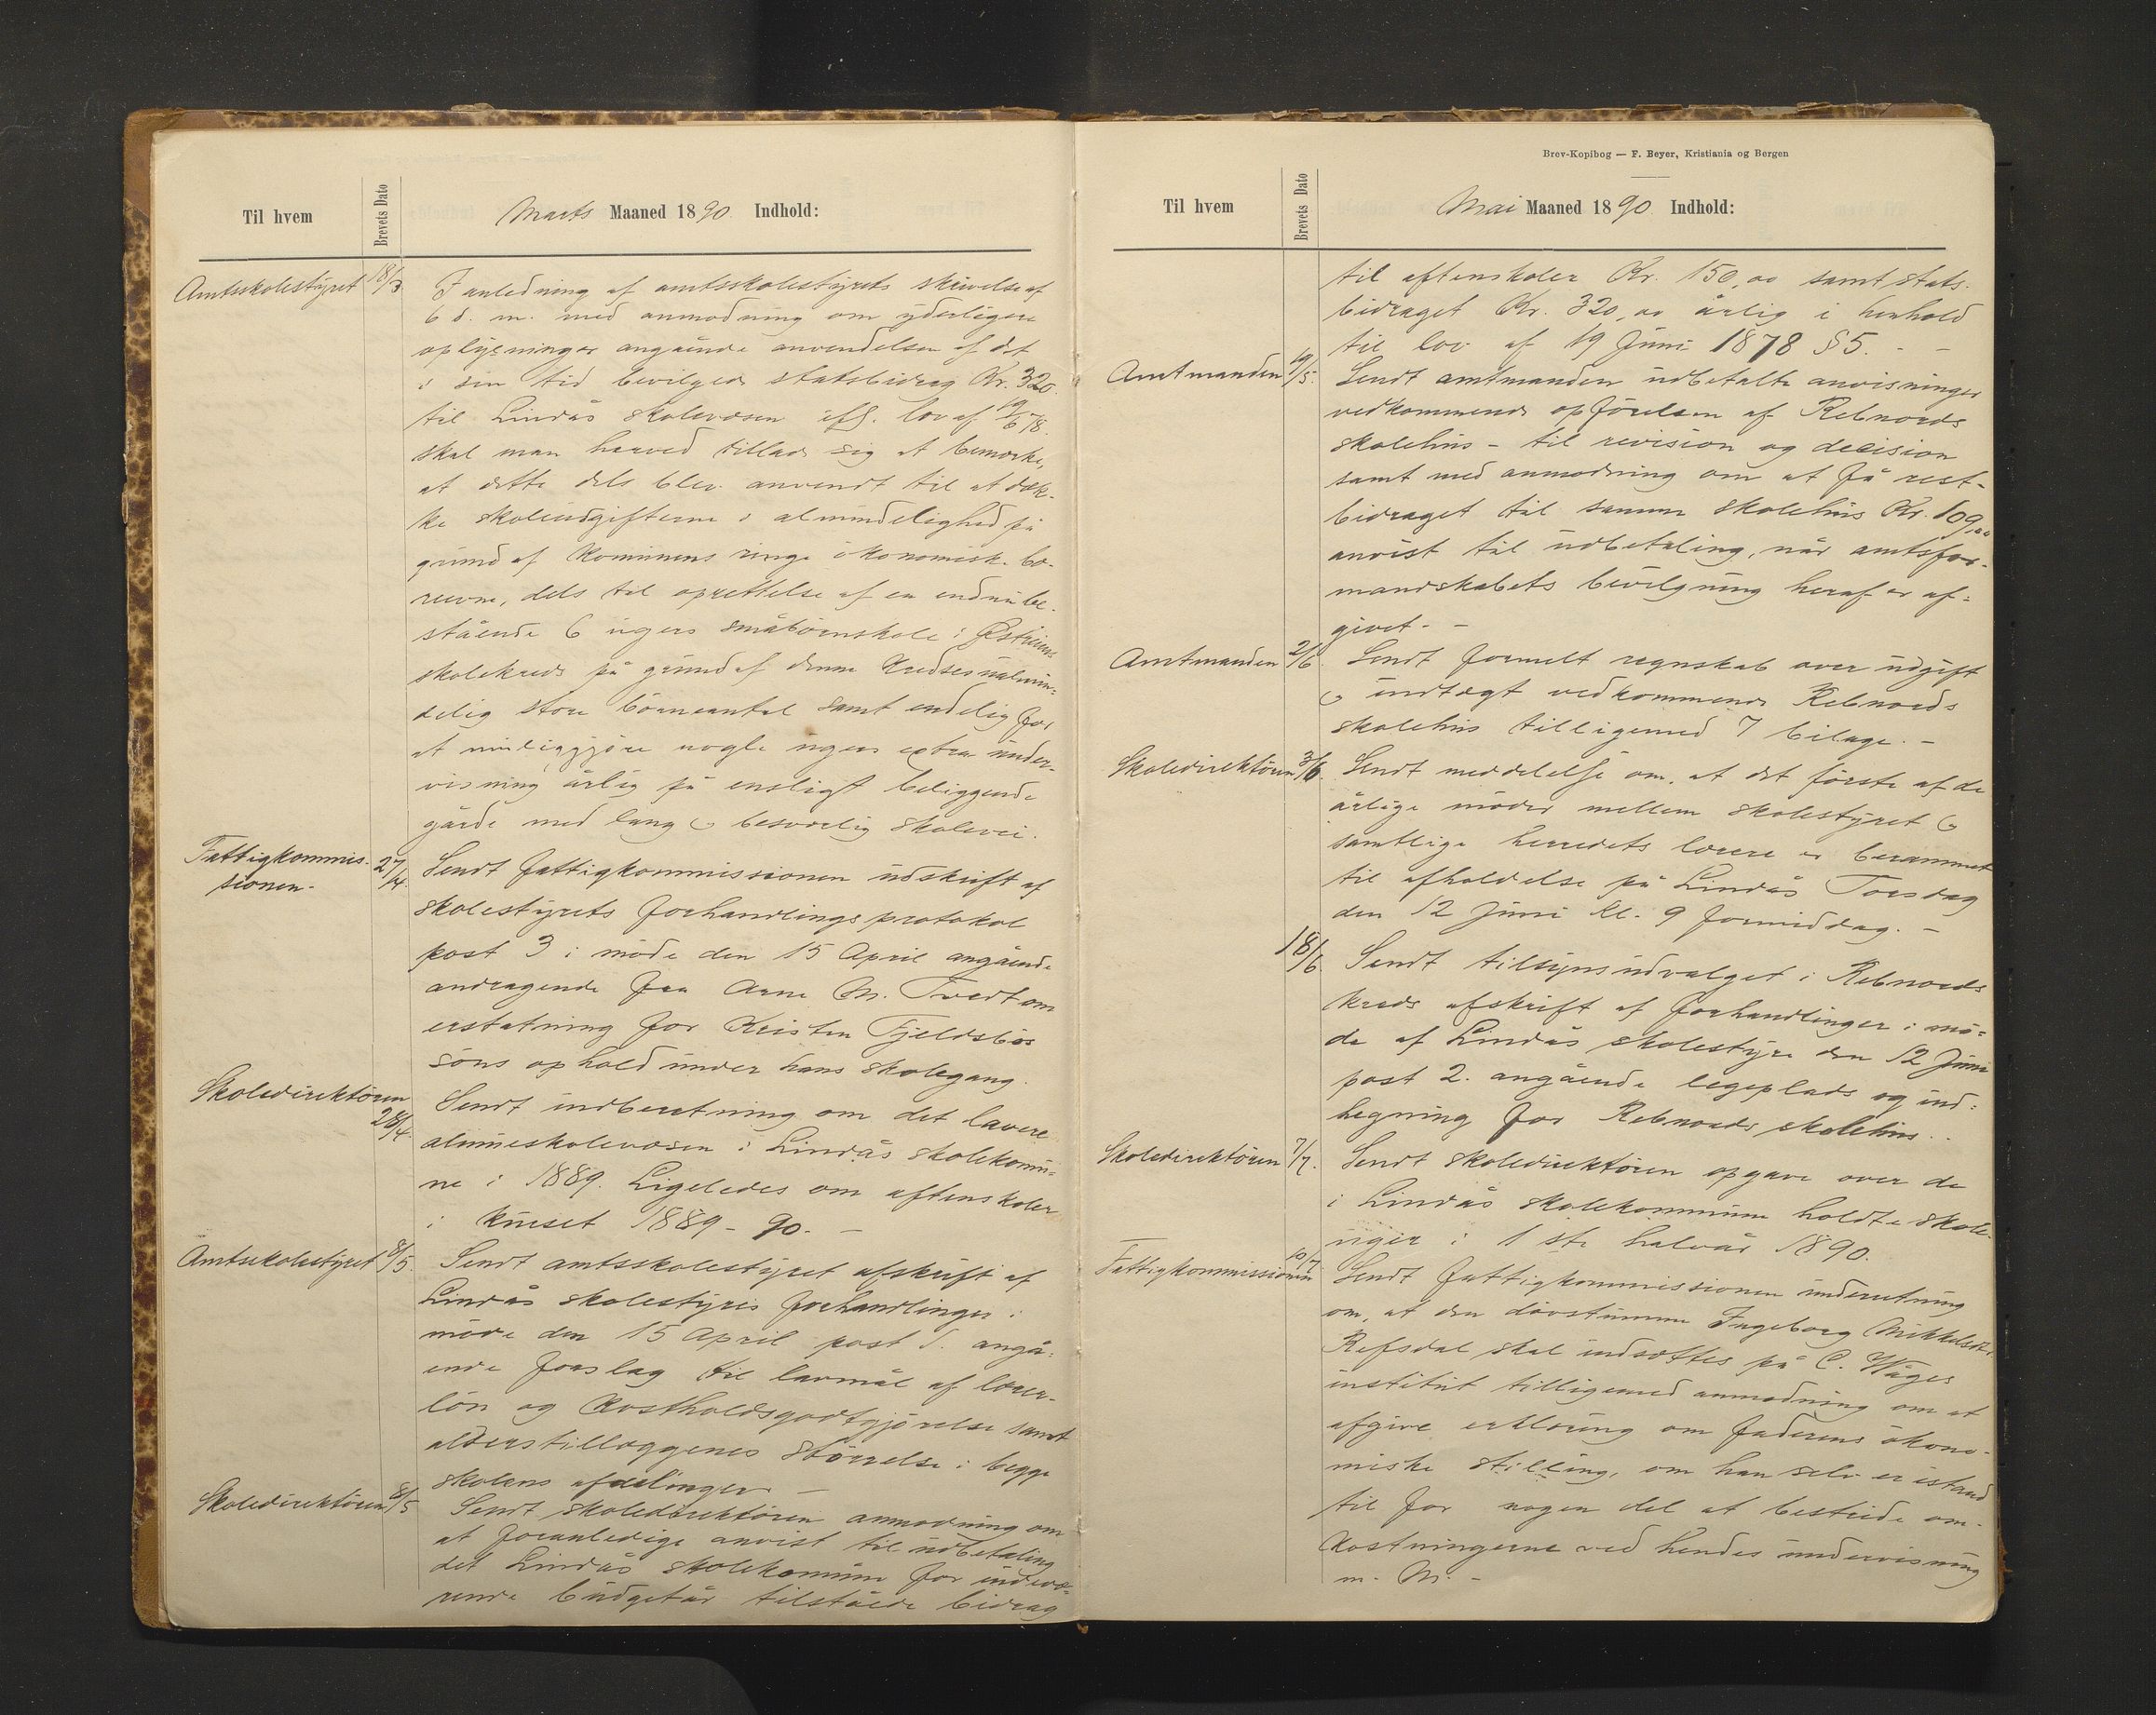 Til hvem
Brevets Dato
Marts Maaned 1890 Indhold:
Amtsskolestyret 18/3
I anledning af amtsskolestyrets skrivelse af
6 d. m. med anmodning om yderligere
oplysninger angående anvendelsen af det
i sin tid bevilgede statsbidrag Kr. 320
til Lindås skolevæsen iflg. lov af 19/6 78.
skal man herved tillade sig at bemærke,
at dette dels blev anvendt til at dæk-
ke skoleudgifterne i almindelighed på
grund af kommunens ringe ökonomiske bæ-
reevne, dels til oprettelse af en endnu be-
stående 6 ugers småbörnskole i
skolekreds på grund af denne kredses ualmin-
delig store börneantal samt endelig for
at muliggjöre nogle ugers extra under-
visning årlig på ensligt beliggende
gårde med lang & besværlig skolevei.
Fattigkommis-
sionen.
27/4.
Sendt fattigkommissionen udskrift af
skolestyrets forhandlingsprotokol
post 3 i möde den 15 April angående
andragende fra Arne M. Tvedt om
erstatning for Kristen Fjeldsbös
söns ophold under hans skolegang.
Skoledirektören
28/4.
Sendt indberetning om det lavere
almueskolevæsen i Lindås skolekommu-
ne i 1889. Ligeledes om aftenskoler
i kurset 1889-90. —
Amtsskolestyret 8/5.
Sendt amtsskolestyret afskrift af
Lindås skolestyres forhandlinger i
möde den 15 April post 1. angå-
ende forslag til lavmål af lærer-
lön og kostholdsgodtgjörelse samt
alderstillæggenes störrelse i begge
skolens afdelinger —
Skoledirektören 8/5
Sendt skoledirektören anmodning om
at foranledige anvist til udbetaling
det Lindås skolekommune for indevæ-
rende budgetår tilståede bidrag
Brev-Kopibog — F. Beyer, Kristiania og Bergen
Til hvem
Brevets Dato
Mai Maaned 1890 Indhold:
til aftenskoler Kr. 150,00 samt stats-
bidraget Kr. 320,00 årlig i henhold
til lov af 19 Juni 1878 § 5. - -
Amtmanden 19/5.
Sendt amtmanden udbetalte anvisninger
vedkommende opförelsen af Rebnords
skolehus - til revision og decision
samt med anmodning om at få rest-
bidraget til samme skolehus Kr. 109,00
anvist til udbetaling, når amtsfor-
mandskabets bevilgning heraf er af-
givet. -
Amtmanden 2/6.
Sendt formelt regnskab over udgift
& indtægt vedkommende Rebnords
skolehus tilligemed 7 bilage. -
Skoledirektören 3/6.
Sendt meddelelse om, at det förste af de
årlige möder mellem skolestyret &
samtlige herredets lærere er berammet
til afholdelse på Lindås Torsdag
den 12 Juni kl. 9 formiddag. -
18/6.
Sendt tilsynsudvalget i Rebnords
kreds afskrift af forhandlinger i mö-
de af Lindås skolestyre den 12 Juni
post 2. angående legeplads og ind-
hegning for Rebnords skolehus. .
Skoledirektören 7/7.
Sendt skoledirektören opgave over de
i Lindås skolekommune holdte skole-
uger i 1ste halvår 1890.
Fattigkommissionen 10/7
Sendt fattigkommissionen underretning
om, at den dövstumme Ingeborg Mikkelsdtr.
Refsdal skal indsættes på C. Wåges
institut tilligemed anmodning om at
afgive erklæring om faderens ökono-
miske stilling, om han selv er istand
til for nogen del at bestride om-
kostningerne ved hendes undervisning
m. M. -